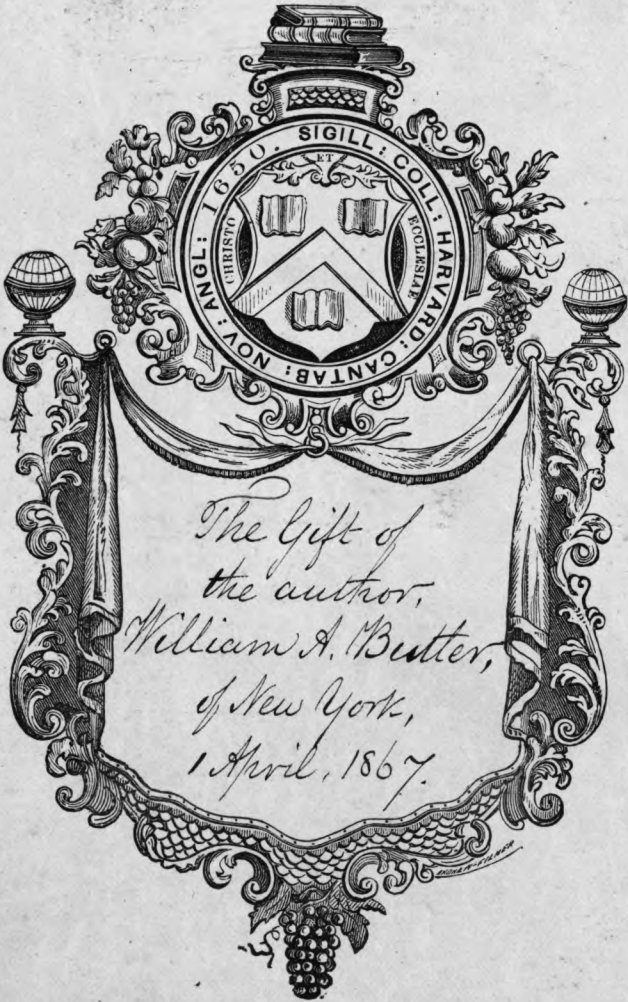 SIGILL: COLL: HARVARD: CANTAB: NOV: ANGL: 1650.
CHRISTO
ET
ECCLESIAE
The Gift of
the author,
William A. Butler,
of New York,
1 April, 1867.